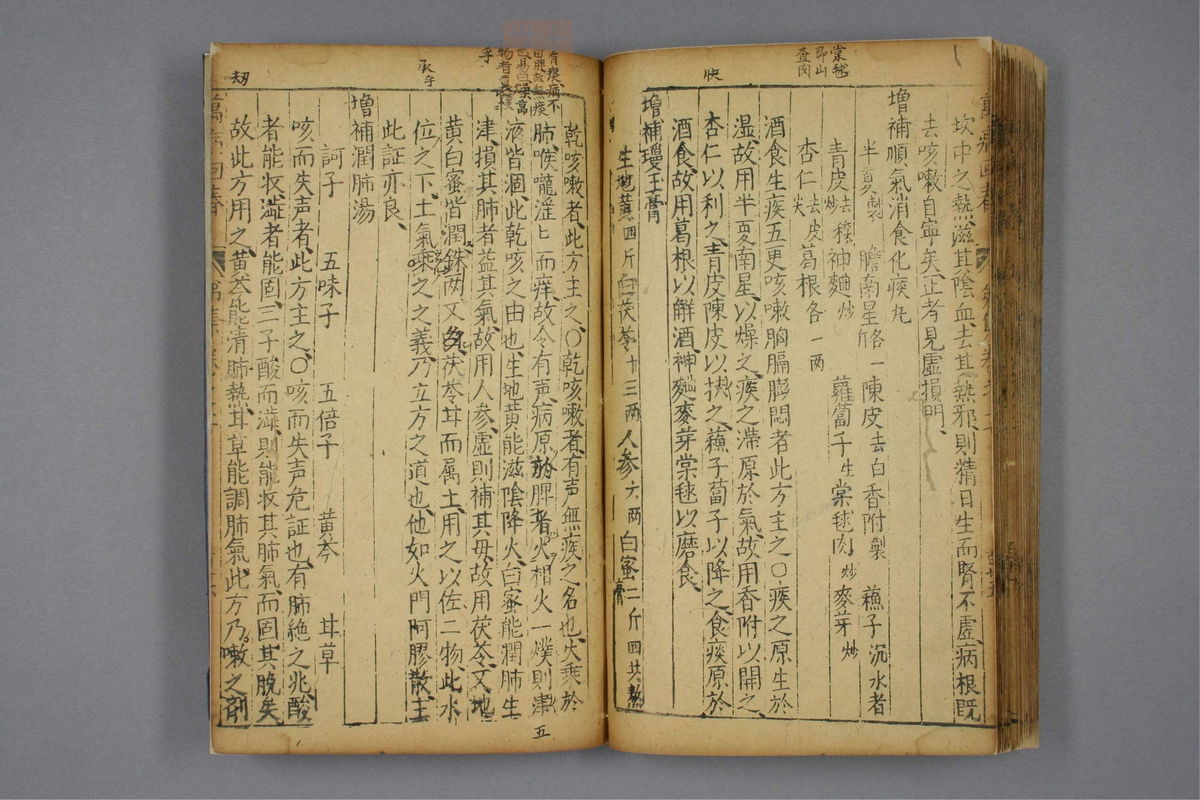 棠毬
即山
查肉
快
坎中之熱滋其陰血去其熱邪則精日生而腎不虛病根既
去咳嗽自寧矣正考見虛損門
增補順氣消食化痰丸
半夏製 膽南星 各一 陳皮去白 香附製 蘓子沉水者
青皮去穰炒 神麯炒 蘿蔔子生 棠毬肉炒 麥芽炒
杏仁去皮尖 葛根各一兩
酒食生痰五更咳嗽胸膈膨悶者此方主之〇痰之原生於
濕故用半夏南星以燥之痰之滯原於氣故用香附以開之
杏仁以利之青皮陳皮以快之蘓子蔔子以降之食痰原於
酒食故用葛根以解酒神麯麥芽棠毬以磨食
增補瓊玉膏
生地黃四斤 白茯苓十三兩 人参六兩 白蜜二斤 四共熬膏
乾咳嗽者此方主之〇乾咳嗽者有声無痰之名也火乘於
肺喉嚨淫匕而痒故令有声病原於脾者火相火一熯則津
液皆涸此乾咳之由也生地黄能滋陰降火白蜜能潤肺生
津損其肺者益其氣故用人参虛則補其母故用茯苓又地
黄白蜜皆潤銖两又多茯苓甘而属土用之以佐二物此水
位之下土氣乘之之義乃立方之道也他如火門阿膠散主
此証亦良
增補潤肺湯
訶子 五味子 五倍子 黄芩 甘草
咳而失声者此方主之〇咳而失声危証也有肺絶之兆酸
者能收澁者能固三子酸而澁則能收其肺氣而固其脫矣
故此方用之黄芩能清肺熱甘草能調肺氣此方乃嗽之劑
五